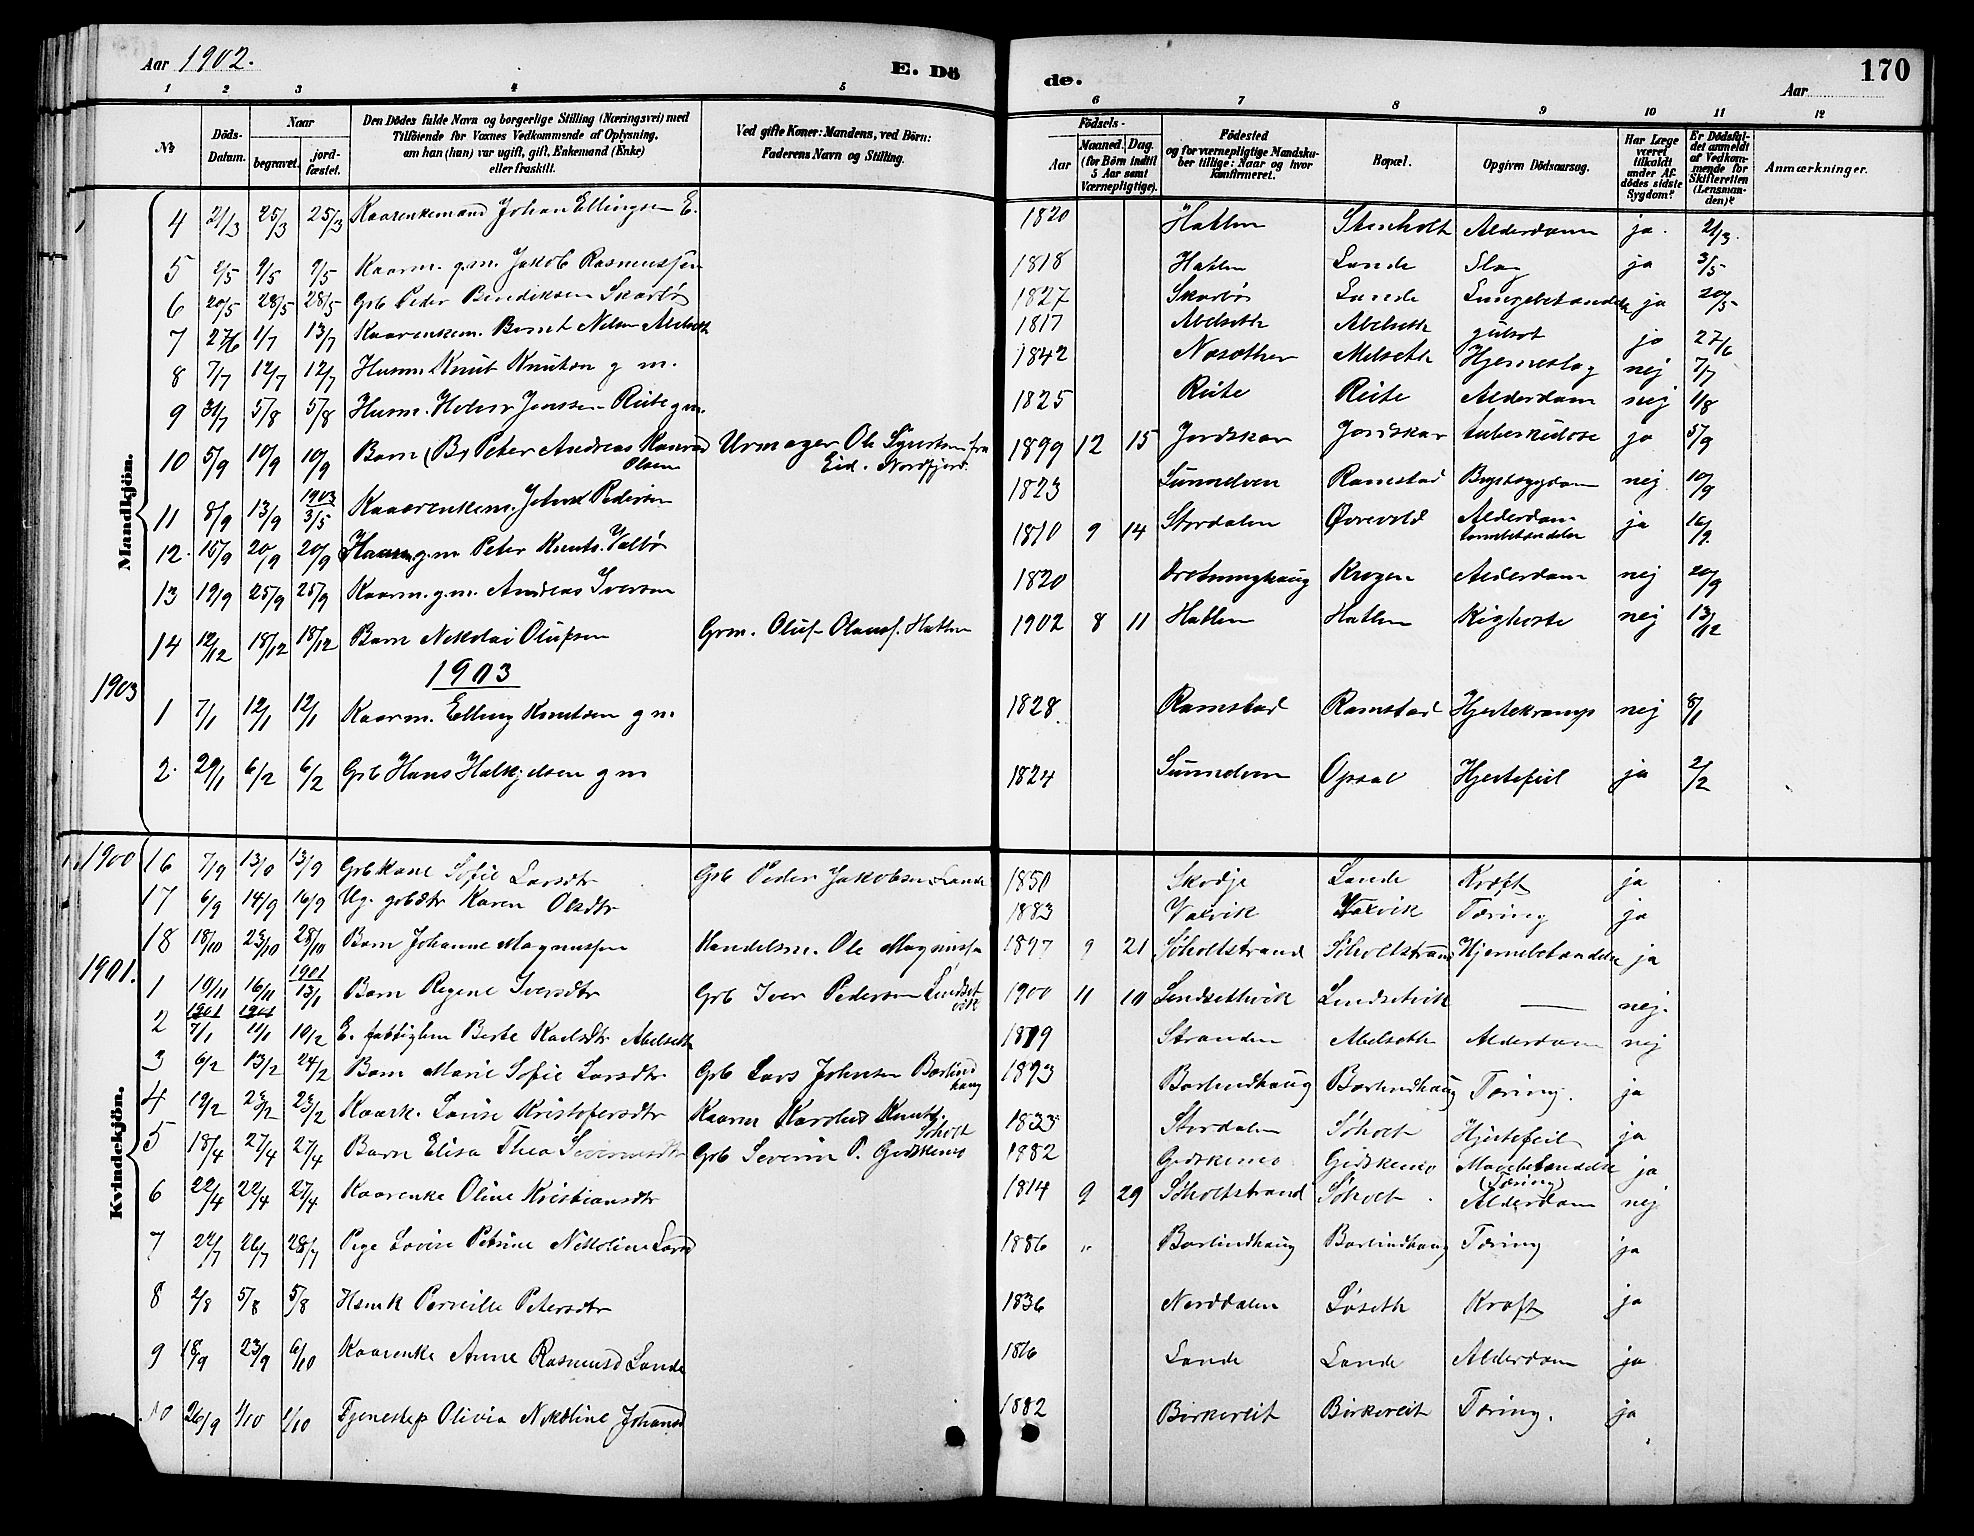 Aar 1902. E. Dö de. Aar 170
1 2 3 4 5 6 7 8 9 10 11 12
№ Döds-Datum. Naar begravet. jordfæstet. Den Dödes fulde Navn og borgerlige Stilling (Næringsvei) med Tilföiende for Voxnes Vedkommende af Oplysning, om han (hun) var ugift, gift, Enkemand (Enke) eller fraskilt. Ved gifte Koner: Mandens, ved Börn: Faderens Navn og Stilling. Födsels- Aar Maaned. Dag. (for Börn indtil 5 Aar samt Værnepligtige). Födested og for værnepligtige Mandskaber tillige: Naar og hvor konfirmeret. Bopæl. Opgiven Dödsaarsag. Har Læge været tilkaldt under Afdödes sidste Sygdom? Er Dödsfaldet anmeldt af Vedkommende for Skifteretten (Lensmanden)? Anmærkninger.
Mandkjön.
4 21/3 25/3 25/3 Kaarenkemand Johan Ellingsen E. 1820 Hatlen Stenholt Alderdom ja. 21/3.
5 2/5 9/5 9/5 Kaarm. g.m. Jakob Rasmussen 1818 Hatlen Lande Slag ja 3/5
6 20/5 28/5 28/5 Grb Peder Bendiksen Skorbø 1827 Skorbø Lande Lungebetændelse ja 20/5
7 27/6 1/7 13/7 Kaarenkem. Bernt Nilsen Abelseth 1817 Abelseth Abelseth gulsot ja 27/6
8 7/7 12/7 12/7 Husm. Knut Knutsen g m. 1842 Melseth Hjerneslag nej 7/7
9 31/7 5/8 5/8 Husm. Jenssen Reite g m. 1825 Reite Reite Alderdom nej 1/8
10 5/9 10/9 10/9 Barn (B) Peter Andreas Konrad Olsen Urmager Ole Syvertsen fra Eid. Nordfjord. 1899 12 15 Jordskar Jordskar tuberkulose ja 5/9
11 8/9 13/9 1903 3/5 Kaarenkem. Pedersen 1823 Sunnelven Ramstad Brystsygdom nej 10/9
12. 15/9 20/9 20/9 Kaarm g.m Peter Knuts. Valbø 1810 9 14 Stordalen Øvrevold Alderdom ja 16/9.
13 19/9 25/9 25/9 Kaarm. g.m. Andreas Iversen 1820 Drotninghaug Krogen Alderdom nej 20/9
14 12/12 18/12 18/12 Barn Nikolai Olufsen Grm. Oluf Hatlen 1902 8 11 Hatlen Hatlen Kighoste nej 13/12
1903
1903 1 7/1 12/1 12/1 Kaarm. Elling Knutsen g m 1828. Ramstad Ramstad Hjertekramp nej 8/1
2. 29/1 6/2 6/2 Grb Hans Halkjelsen g m 1824 Sunnelven Opsal Hjertefeil ja 2/2
Kvindekjön.
1900 16 7/9 13/9 13/9 Grbkone Sofie Larsdtr Grb Peder Jakobsen Lande 1850 Skodje Lande Kræft ja
17 6/9 14/9 16/9 Ug. grbdtr Karen Olsdtr 1883 Valvik Valvik Tæring ja
18 18/10 23/10 28/10 Barn Johanne Magnussen Handelsm. Ole Magnussen 1897 9 21 Søholtstrand Søholtstrand Hjernebetændelse ja
1901. 1 19/11 16/11 1901 13/1 Barn Regine Iversdtr Grb Iver Pedersen Lindsetvik 1900 11 10 Lindsetvik Lindsetvik — nej.
2 1901 7/1 1901 11/1 10/2 E. fattiglem Berte Karlsdtr Abelseth 1819 Stranden Abelseth Alderdom nej
3 6/2 13/2 24/2 Barn Marie Sofie Larsdtr Grb Lars Johnsen Barlindhaug 1893 Barlindhaug Barlindhaug Tæring. ja
4 19/2 23/2 23/2 Kaark. Lovise Kristofersdtr Kaarm Karolus Knuts. Søholt 1833 Stordalen Søholt Hjertefeil ja
5 18/4 27/4 27/4 Barn Elisa Thea Severinsdtr Grb Severin P. Gidskemo 1882 Gidskemo Gidskemo Mavebetændelse (Tæring) ja
6 22/4 22/4 27/4 Kaarenke Oline Kristiansdtr 1814 9 29 Søholtstrand Søholt. Alderdom nej
7 22/7 26/7 28/7 Pige Lovise Petrine Nikoline Larsd 1886 „ Barlindhaug Barlindhaug Tæring ja
8 2/8 5/8 5/8 Husmk Pernille Petersdtr 1836 Norddalen Løseth Kræft ja
9 18/9 23/9 6/10 Kaarenke Anne Rasmusd Lande 1816 Lande Lande Alderdom ja
10 26/9 1/10 1/10 Tjenestep Olivia Nikoline Johansd 1882 Birkereit Birkereit Tæring. ja